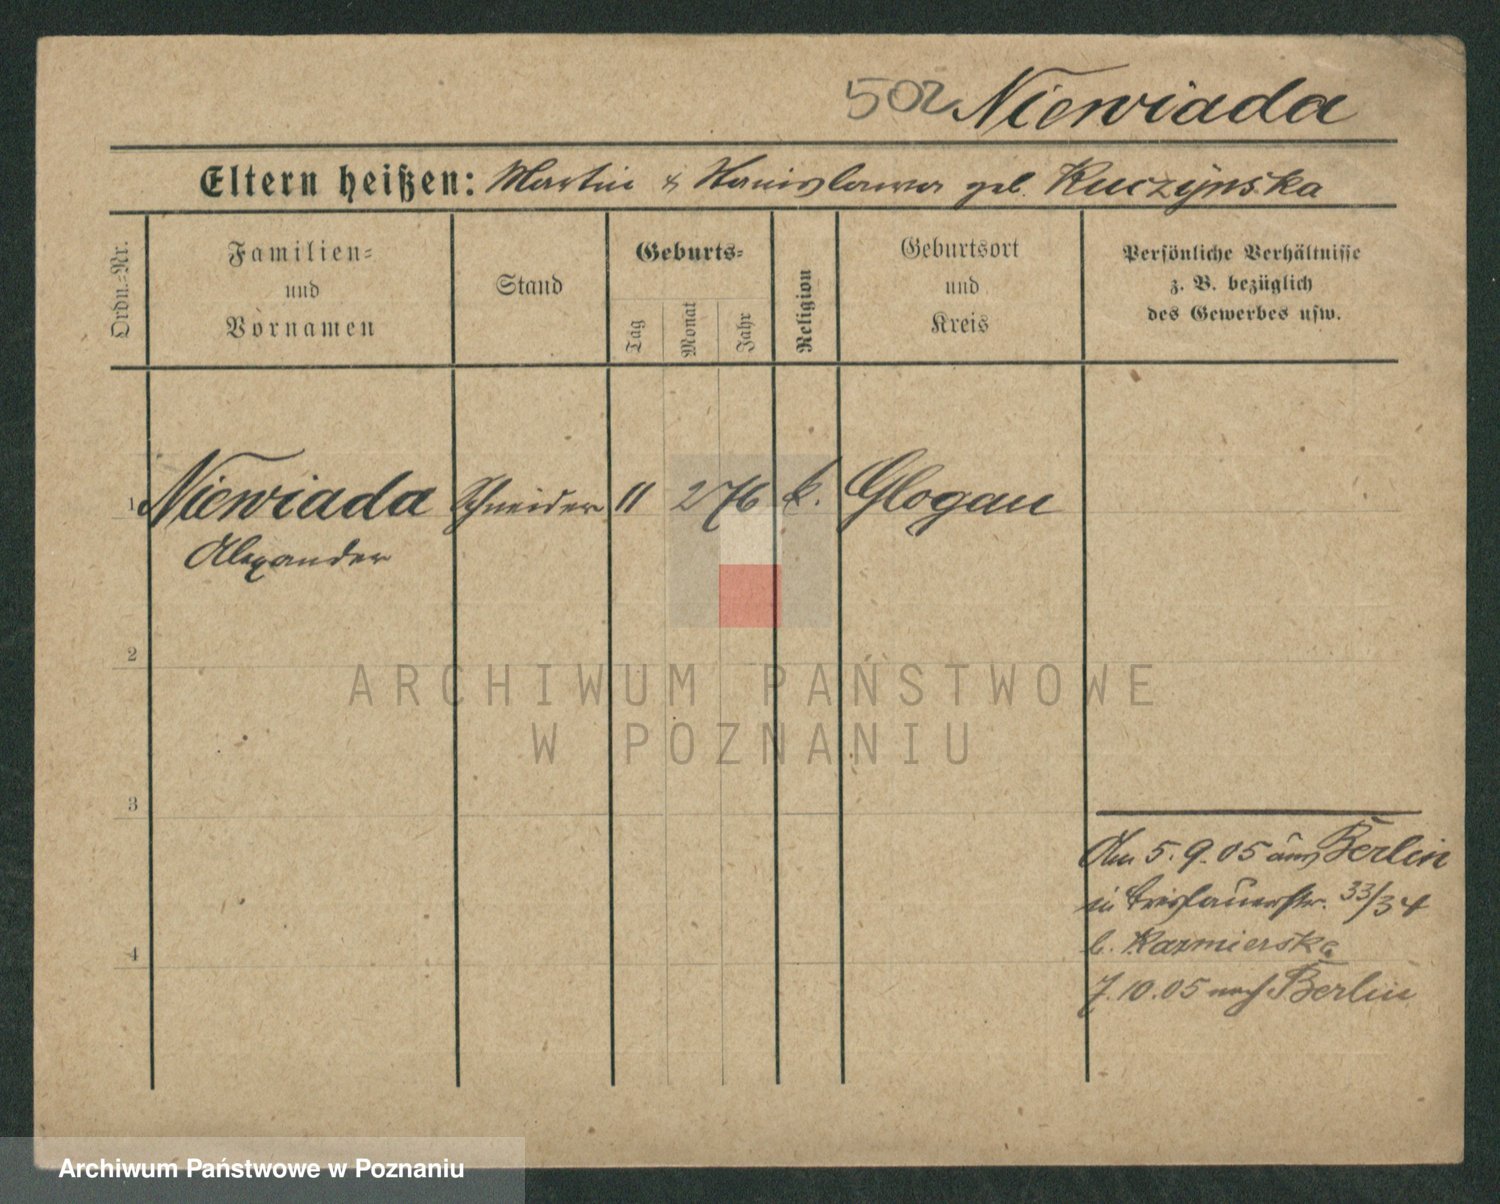 502 Niewiada
Eltern heißen: Martin & Stanislawa geb. Kuczynska
Ordn.-Nr.
Familien-
und
Vornamen
Stand
Geburts-
Tag
Monat
Jahr
Religion
Geburtsort
und
Kreis
Persönliche Verhältnisse
z. B. bezüglich
des Gewerbes usw.
1 Niewiada Schneider 11 2 76 k. Glogau
Alexander
2
3
4
Am 5.9.05 aus Berlin
in Breslauerstr. 33/34
b. Kazmierska
7.10.05 nach Berlin
ARCHIWUM PAŃSTWOWE
W POZNANIU
Archiwum Państwowe w Poznaniu